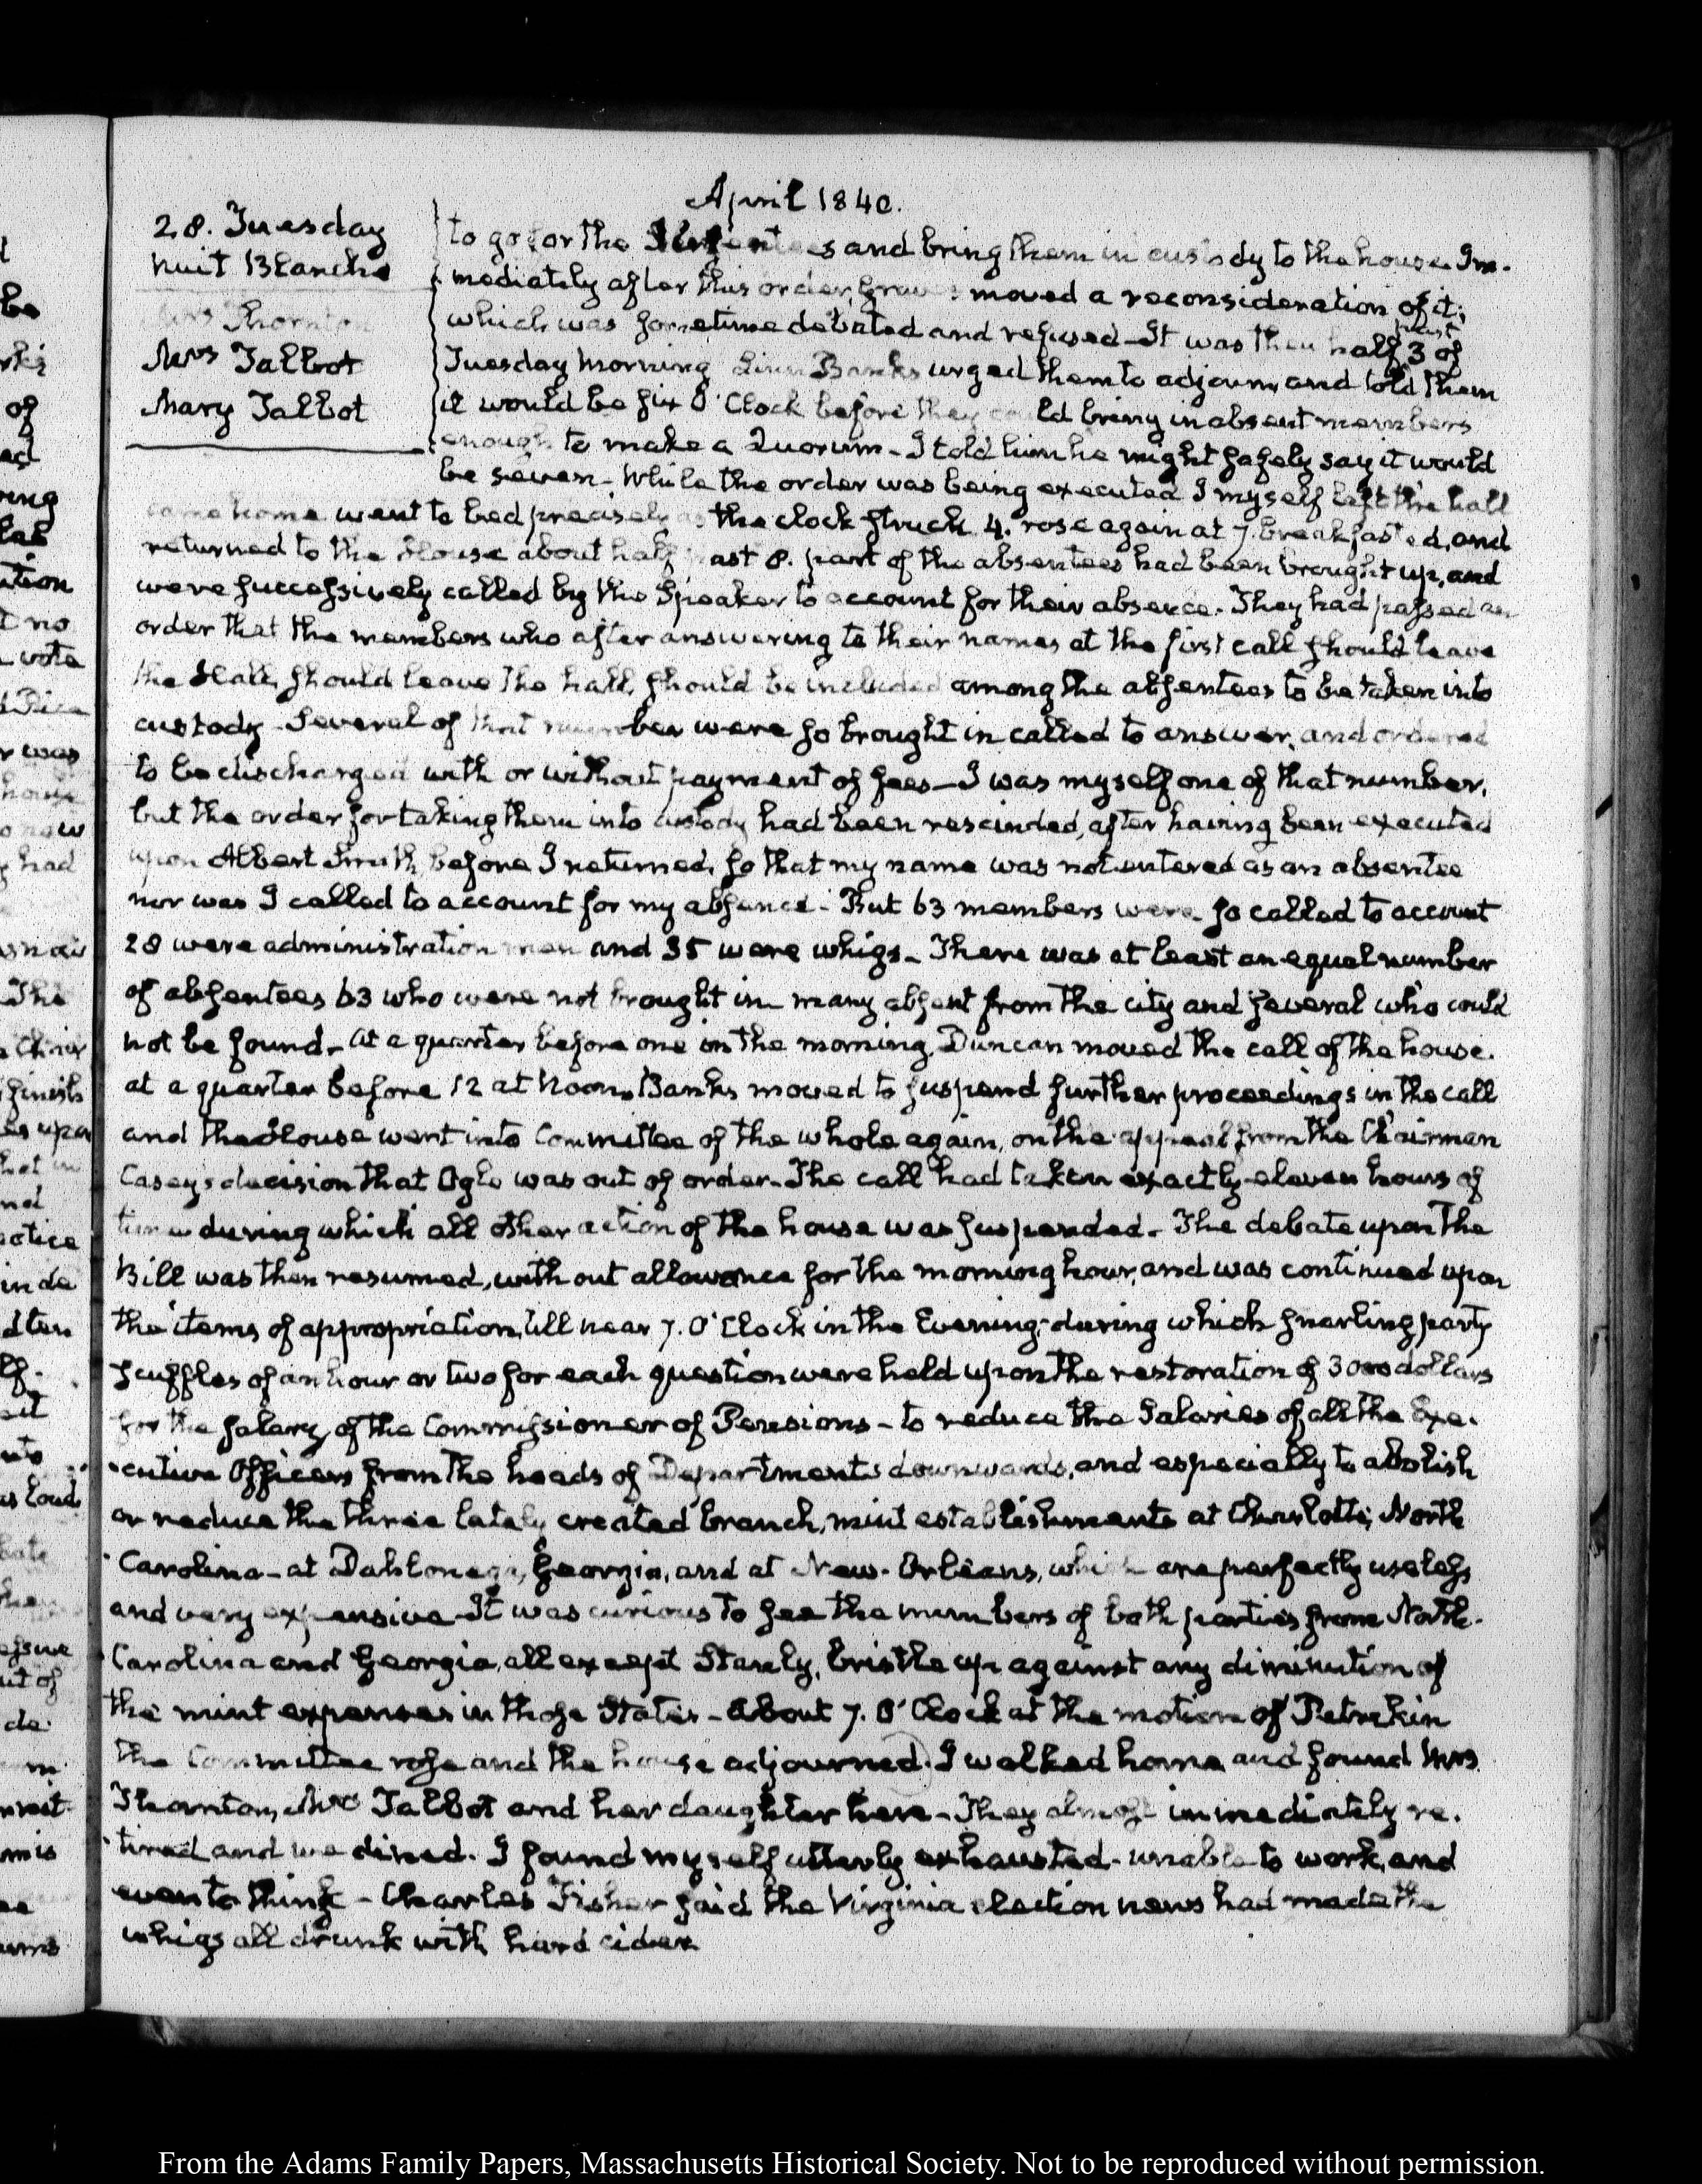 April 1840.
28. Tuesday
nuit Blanche
Mrs Thornton
Mrs Talbot
Mary Talbot
to go for the and bring them in custody to the house. Im-
mediately after this order, Graves moved a reconsideration of it;
which was sometime debated and refused—It was then half past 3 of
Tuesday morning Linn Banks urged them to adjourn, and told them
it would be six O'Clock before they could bring in absent members
enough to make a Quorum—I told him he might safely say it would
be seven—While the order was being executed I myself left the hall
came home went to bed precisely as the clock struck 4. rose again at 7. breakfasted, and
returned to the House about half past 8. part of the absentees had been brought up, and
were successively called by the Speaker to account for their absence. They had passed an
order that the members who after answering to their names at the first call should leave
the Hall, should leave the hall, should be included among the absentees to be taken into
custody—Several of that number were so brought in called to answer, and ordered
to be discharged with or without payment of fees—I was myself one of that number,
but the order for taking them into custody had been rescinded, after having been executed
upon Albert Smith, before I returned, so that my name was not entered as an absentee
nor was I called to account for my absence—But 63 members were so called to account
28 were administration men and 35 were whigs—There was at least an equal number
of absentees 63 who were not brought in many absent from the city and several who could
not be found—at a quarter before one in the morning, Duncan moved the call of the house.
at a quarter before 12 at Noon, Banks moved to suspend further proceedings in the call
and the House went into Committee of the whole again, on the appeal from the Chairman
Casey's decision that Ogle was out of order—The call had taken exactly eleven hours of
time during which all other action of the house was suspended—The debate upon the
Bill was then resumed, without allowance for the morning hour, and was continued upon
the items of appropriation, till near 7. O'Clock in the Evening; during which snarling party
scuffles of an hour or two for each question were held upon the restoration of 3000 dollars
for the salary of the Commissioner of Pensions—to reduce the Salaries of all the Exe-
cutive Officers from the heads of Departments downwards, and especially to abolish
or reduce the three lately created branch, mint establishments at Charlotte, North
Carolina—at Dahlonega, Georgia, and at New-Orleans, which are perfectly useless
and very expensive—It was curious to see the members of both parties from North-
Carolina and Georgia, all except Stanly, bristle up against any diminution of
the mint expenses in those States—About 7. O'Clock at the motion of Petrikin
the Committee rose and the house adjourned. I walked home and found Mrs
Thornton, Mrs Talbot and her daughter here—They almost immediately re-
tired and we dined. I found myself utterly exhausted—unable to work, and
even to think—Charles Fisher said the Virginia election news had made the
whigs all drunk with hard cider
l
be
of
ed
ing
tion
t no
vote
r was
house
now
had
The
finish
upon
nd
notice
in de
out of
de
From the Adams Family Papers, Massachusetts Historical Society. Not to be reproduced without permission.